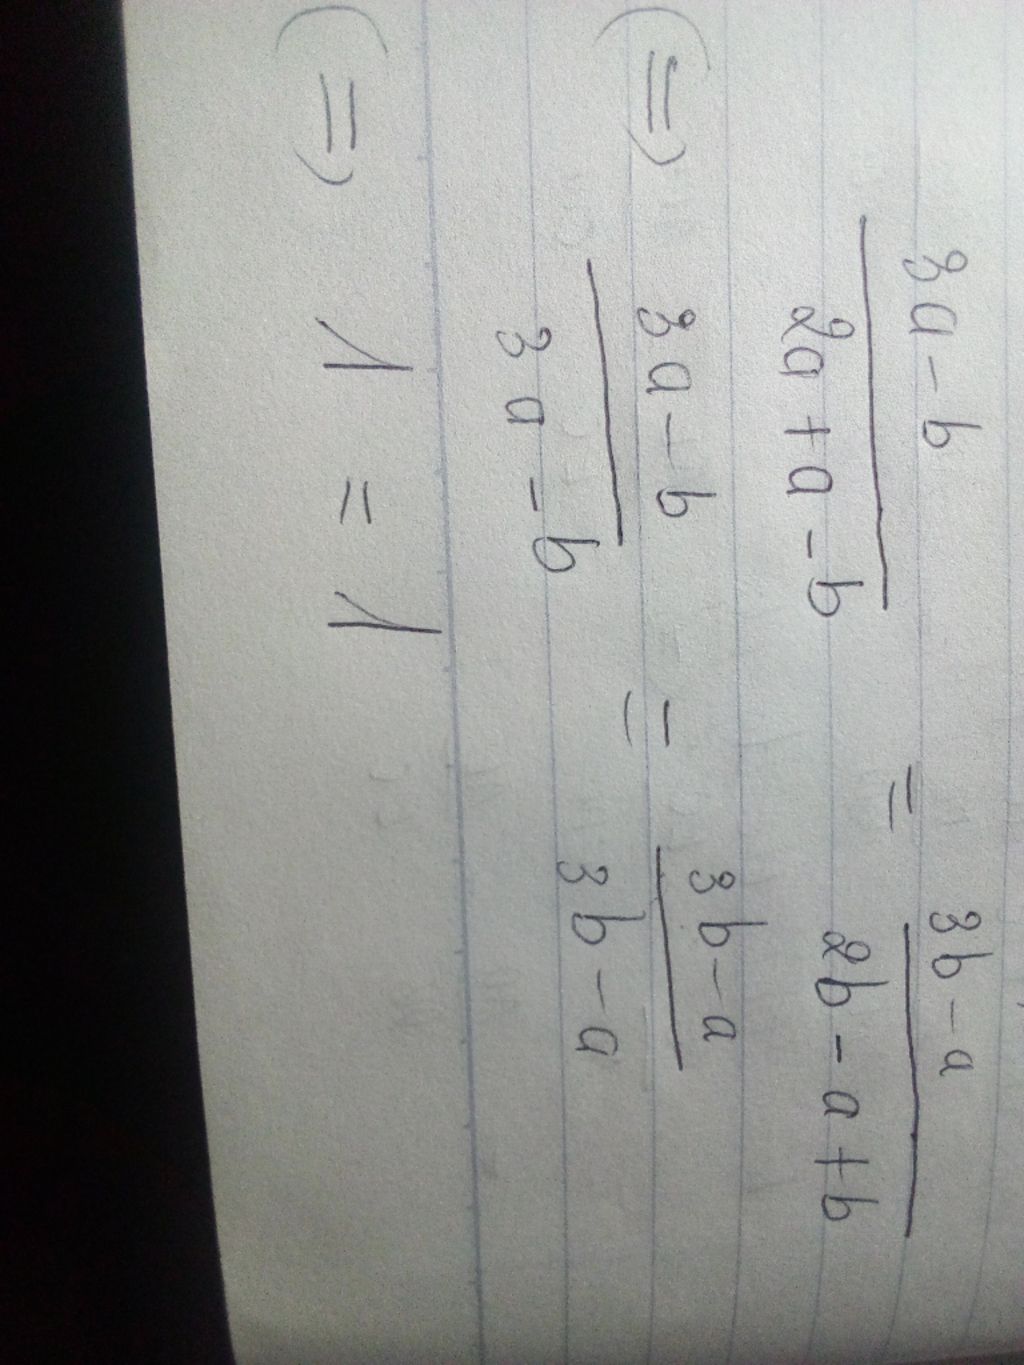 3a - b / 2a + a - b = 3b - a / 2b - a + b
(=) 3a - b / 3a - b = 3b - a / 3b - a
(=) 1 = 1